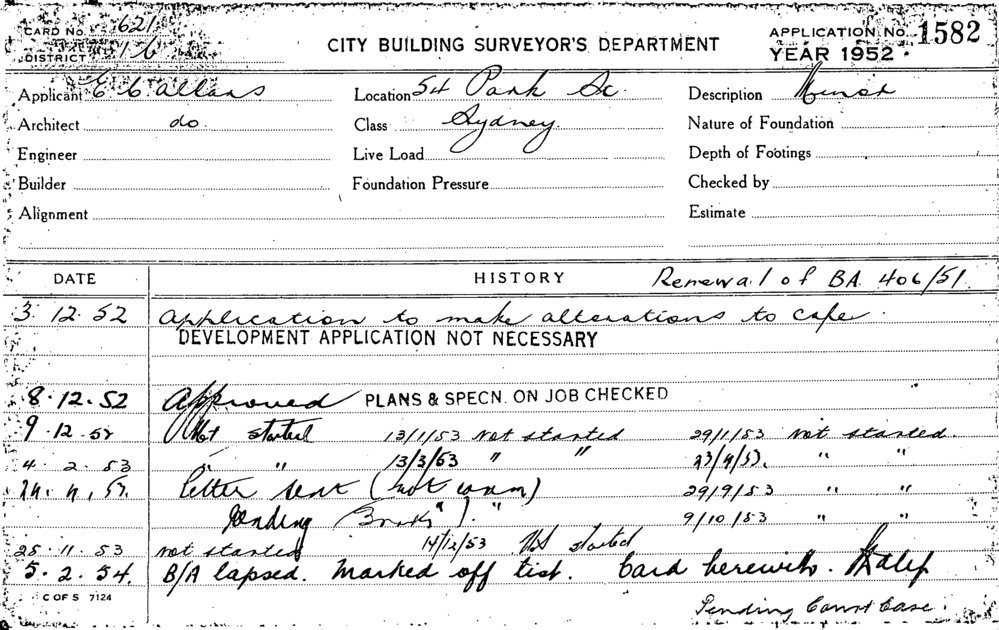 CARD No. 621
CITY BUILDING SURVEYOR'S DEPARTMENT
APPLICATION No. 1582
DISTRICT 16
YEAR 1952
Applicant
Location 54 Park St.
Description Minor
Architect do.
Class Sydney
Nature of Foundation
Engineer
Live Load
Depth of Footings
Builder
Foundation Pressure
Checked by
Alignment
Estimate
DATE HISTORY Renewal of BA. 406/51.
3.12.52 Application to make alterations to cafe.
DEVELOPMENT APPLICATION NOT NECESSARY
8.12.52 Approved PLANS & SPECN. ON JOB CHECKED
9.12.52 Not started 13/1/53 not started 29/1/53 not started.
4.2.53 " " 13/3/53 " " 23/4/53. " "
letter sent 29/9/53 " "
Pending 9/10/53 " "
25.11.53 not started 14/12/53 Not started
5.2.54. B/A lapsed. Marked off list. Card herewith.
C OF S 7124
Pending Court Case.